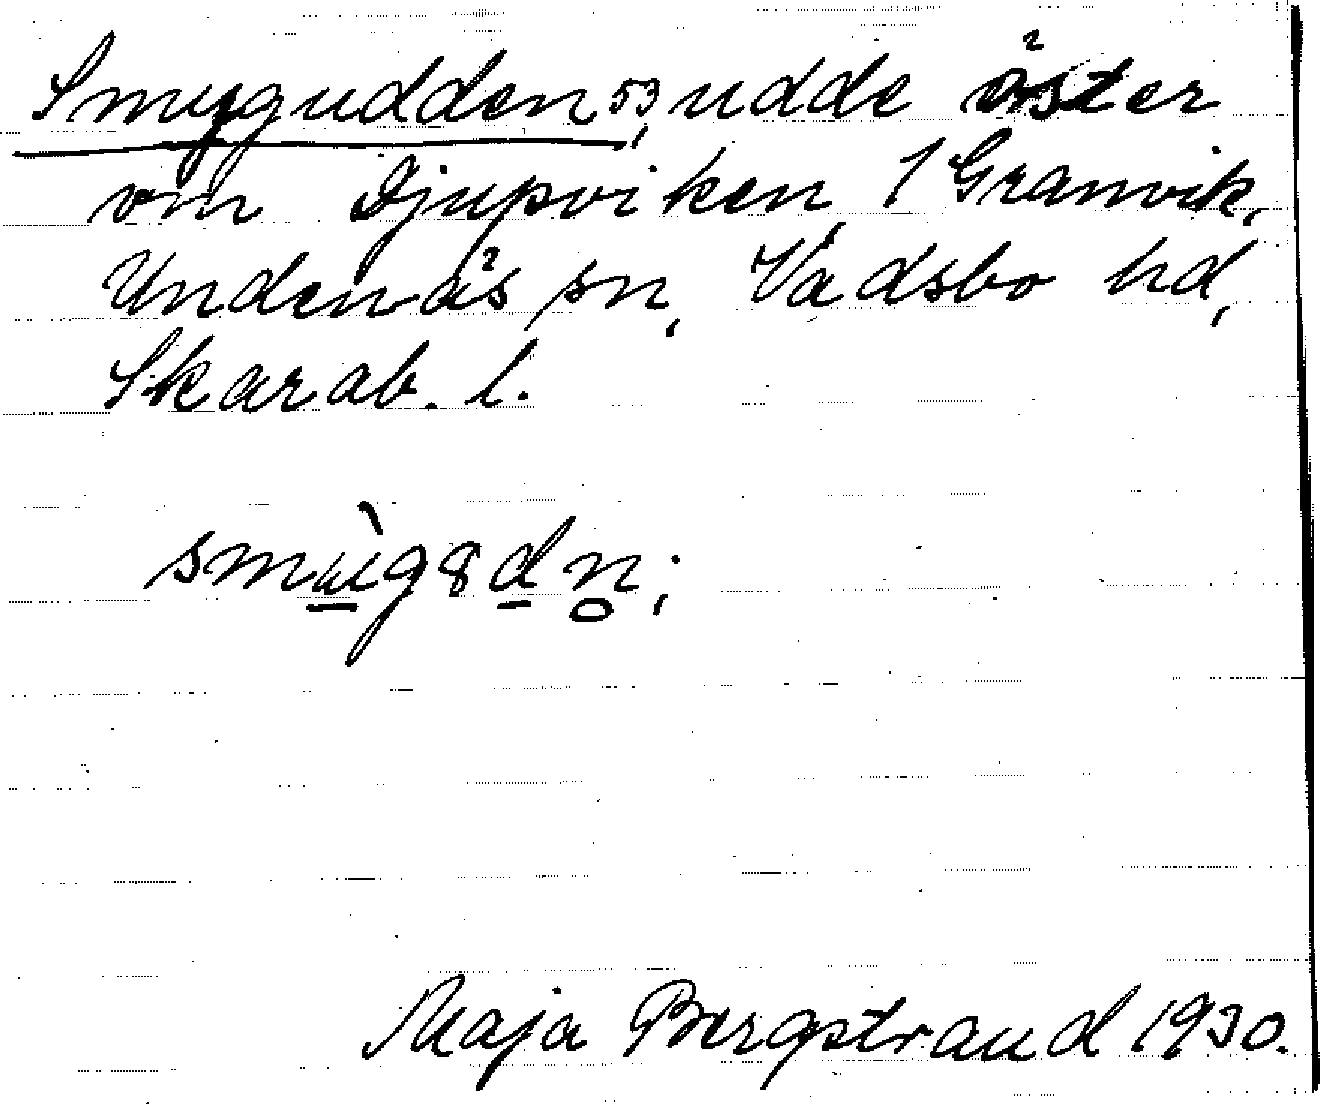 Smygudden 53, udde öster
om Djupviken, 1 Granvik,
Undenäs sn, Vadsbo hd,
Skarab. l.
Maja Bergstrand 1930.